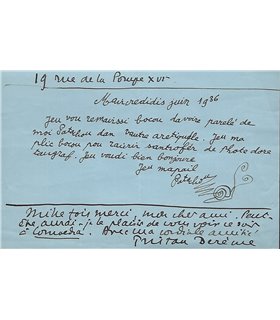 19 rue de la Pompe XVIe
Maircredidis juin 1936
Jeu vou remaissi bocou davoire parelé de
moi Patzhou dan veutre aretiquele. Jeu ma
plic bocou pou
Jeu voudi bien bonjoure
Jeu mapail
Patzhou
Mille fois merci, mon cher ami. Peut-
être aurai-je le plaisir de vous voir ce soir
à Comœdia. Avec ma cordiale amitié
Tristan Derème